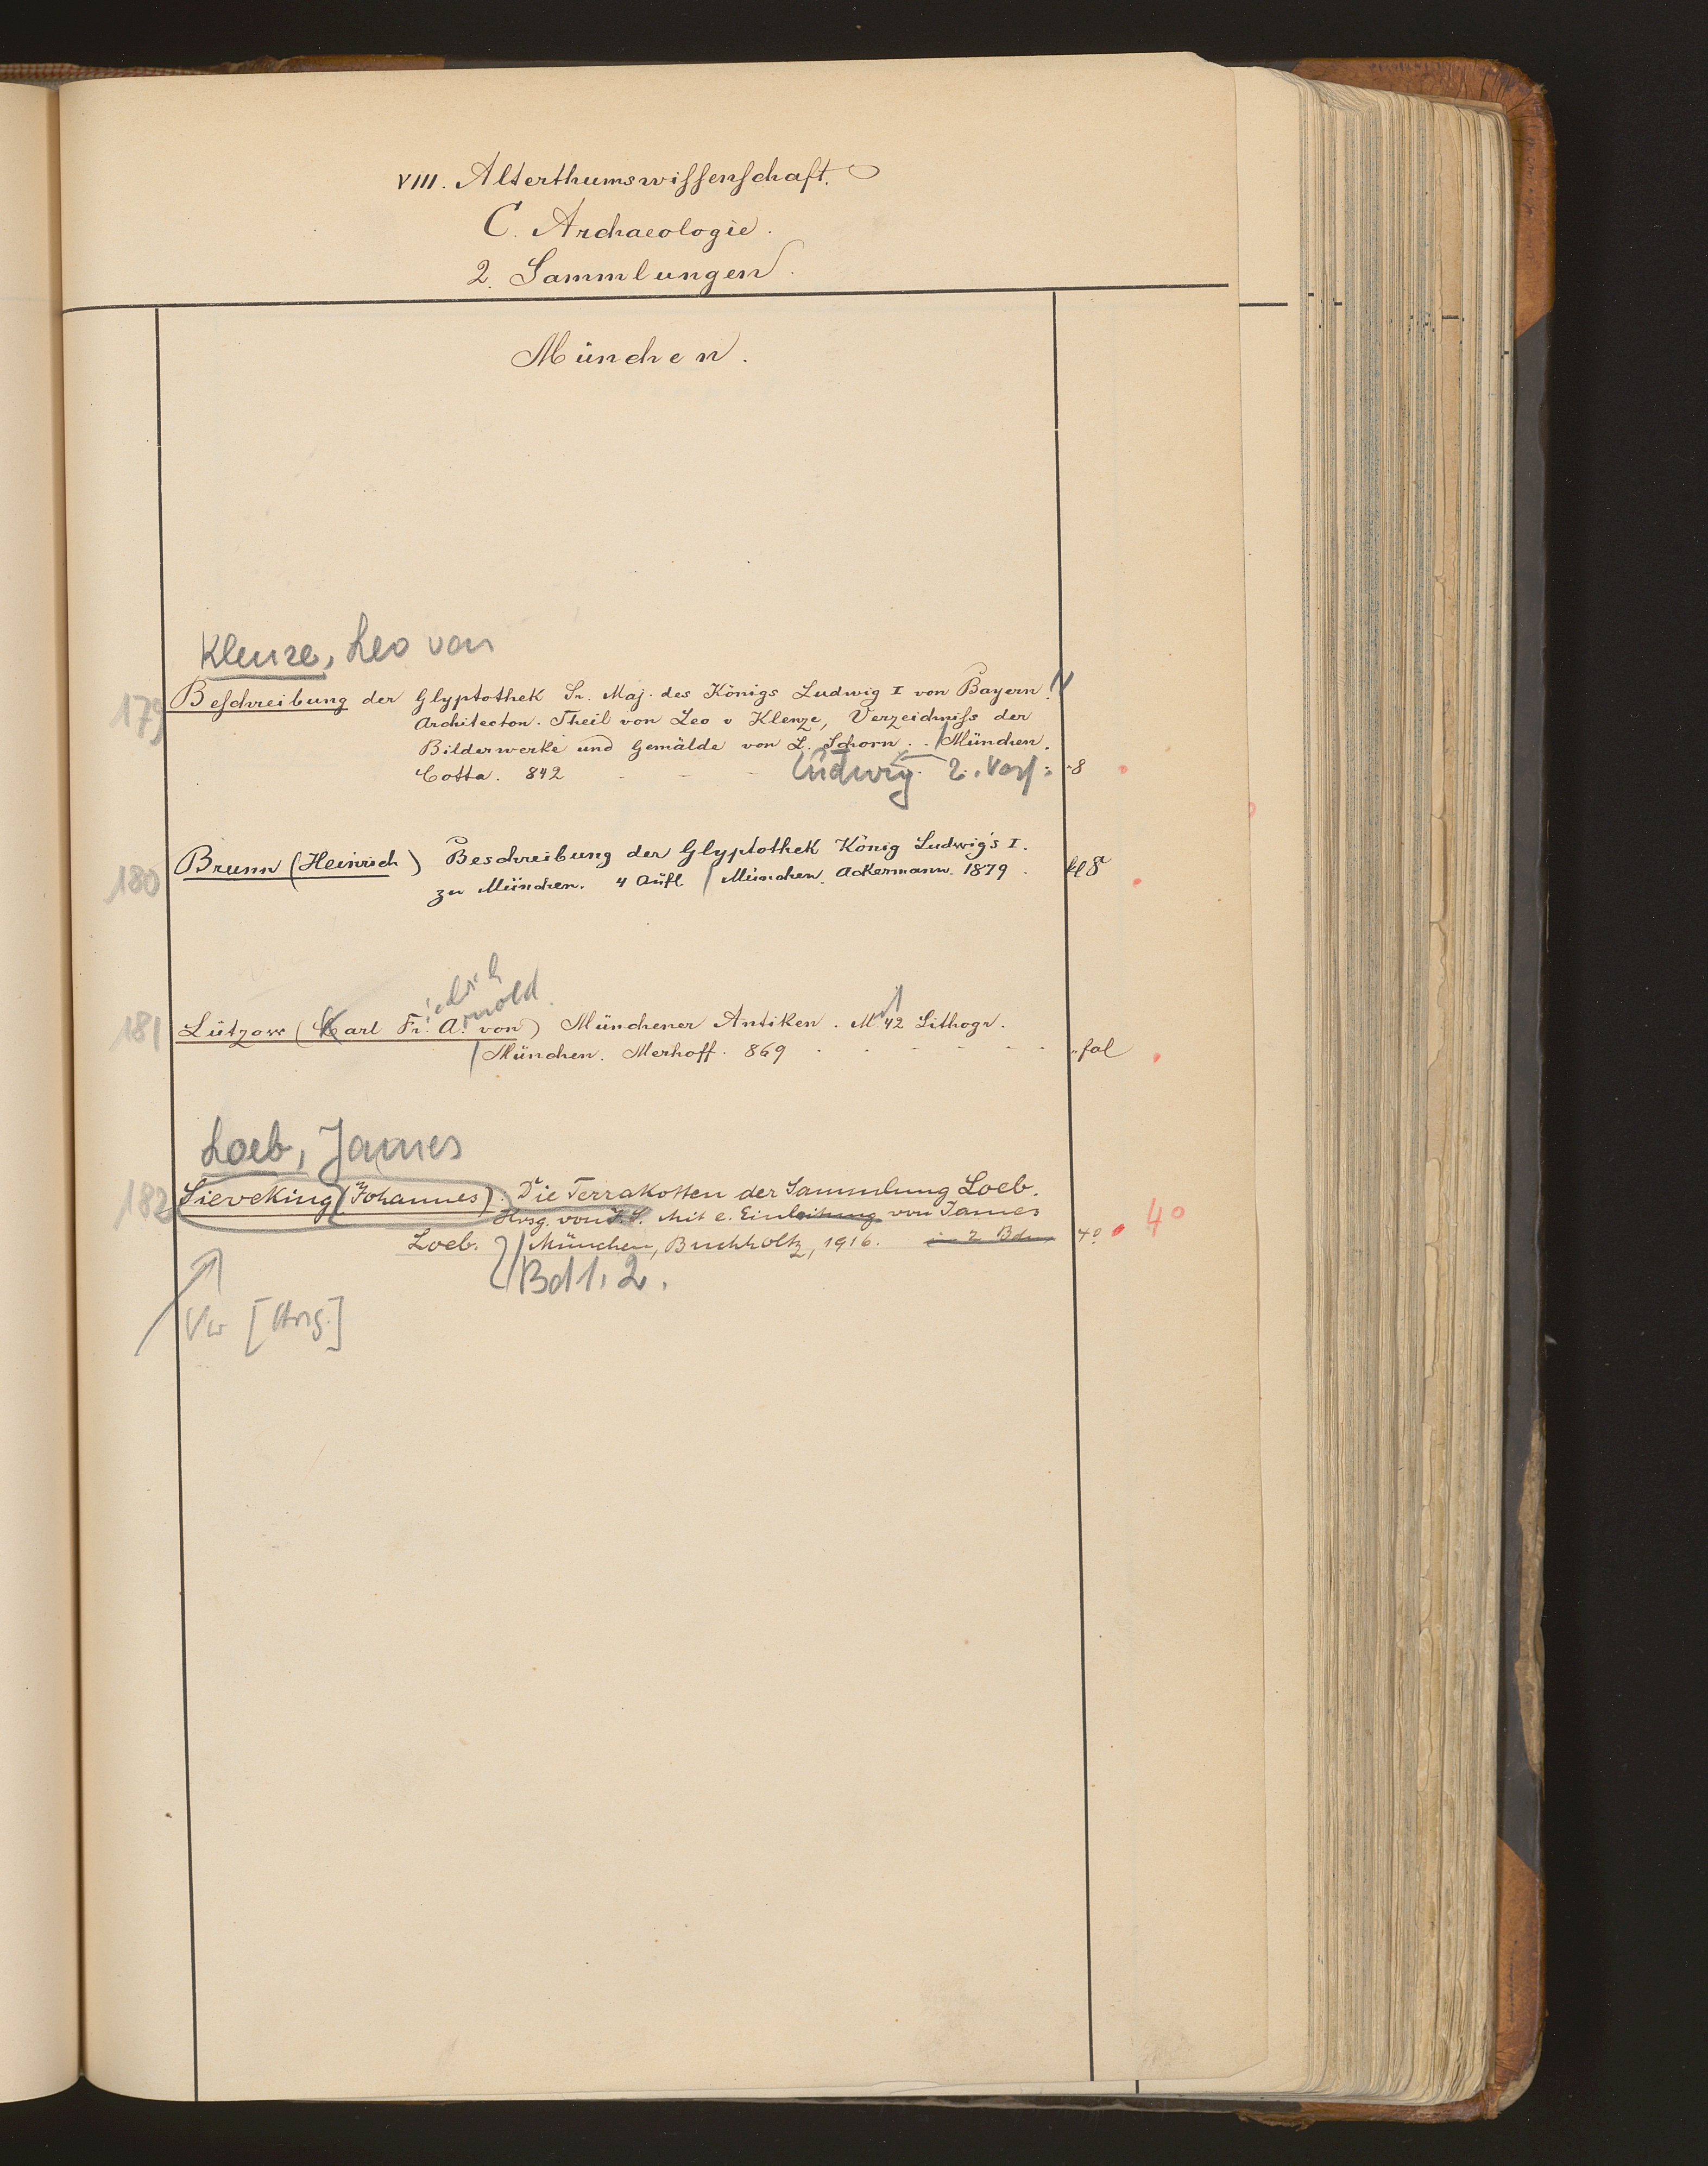 VIII. Alterthumswissenschaft.
C. Archaeologie.
2. Sammlungen.
München.
Klenze, Leo von
179 Beschreibung der Glyptothek Sr. Maj. des Königs Ludwig I von Bayern.
Architecton. Theil von Leo v Klenze, Verzeichniss der
Bilderwerke und Gemälde von L. Schorn. . / München.
Cotta. 842 - - - Ludwig 2. Verf. 8
180 Brunn (Heinrich) Beschreibung der Glyptothek König Ludwig's I.
zu München. 4 Aufl / München. Ackermann. 1879. kl 8
iedrich
rnold
181 Lützow (Karl Fr. A. von) Münchener Antiken. M 42 Lithogr.
/ München. Merhoff. 869 . - . - - - . fol
Loeb, James
182 Sieveking (Johannes). Die Terrakotten der Sammlung Loeb.
Hrsg. von J. S. Mit e. Einleitung von James
Loeb. / München, Buchholtz, 1916. in 2 Bdn 4° 4°
Bd 1. 2.
Vw [Hrsg.]